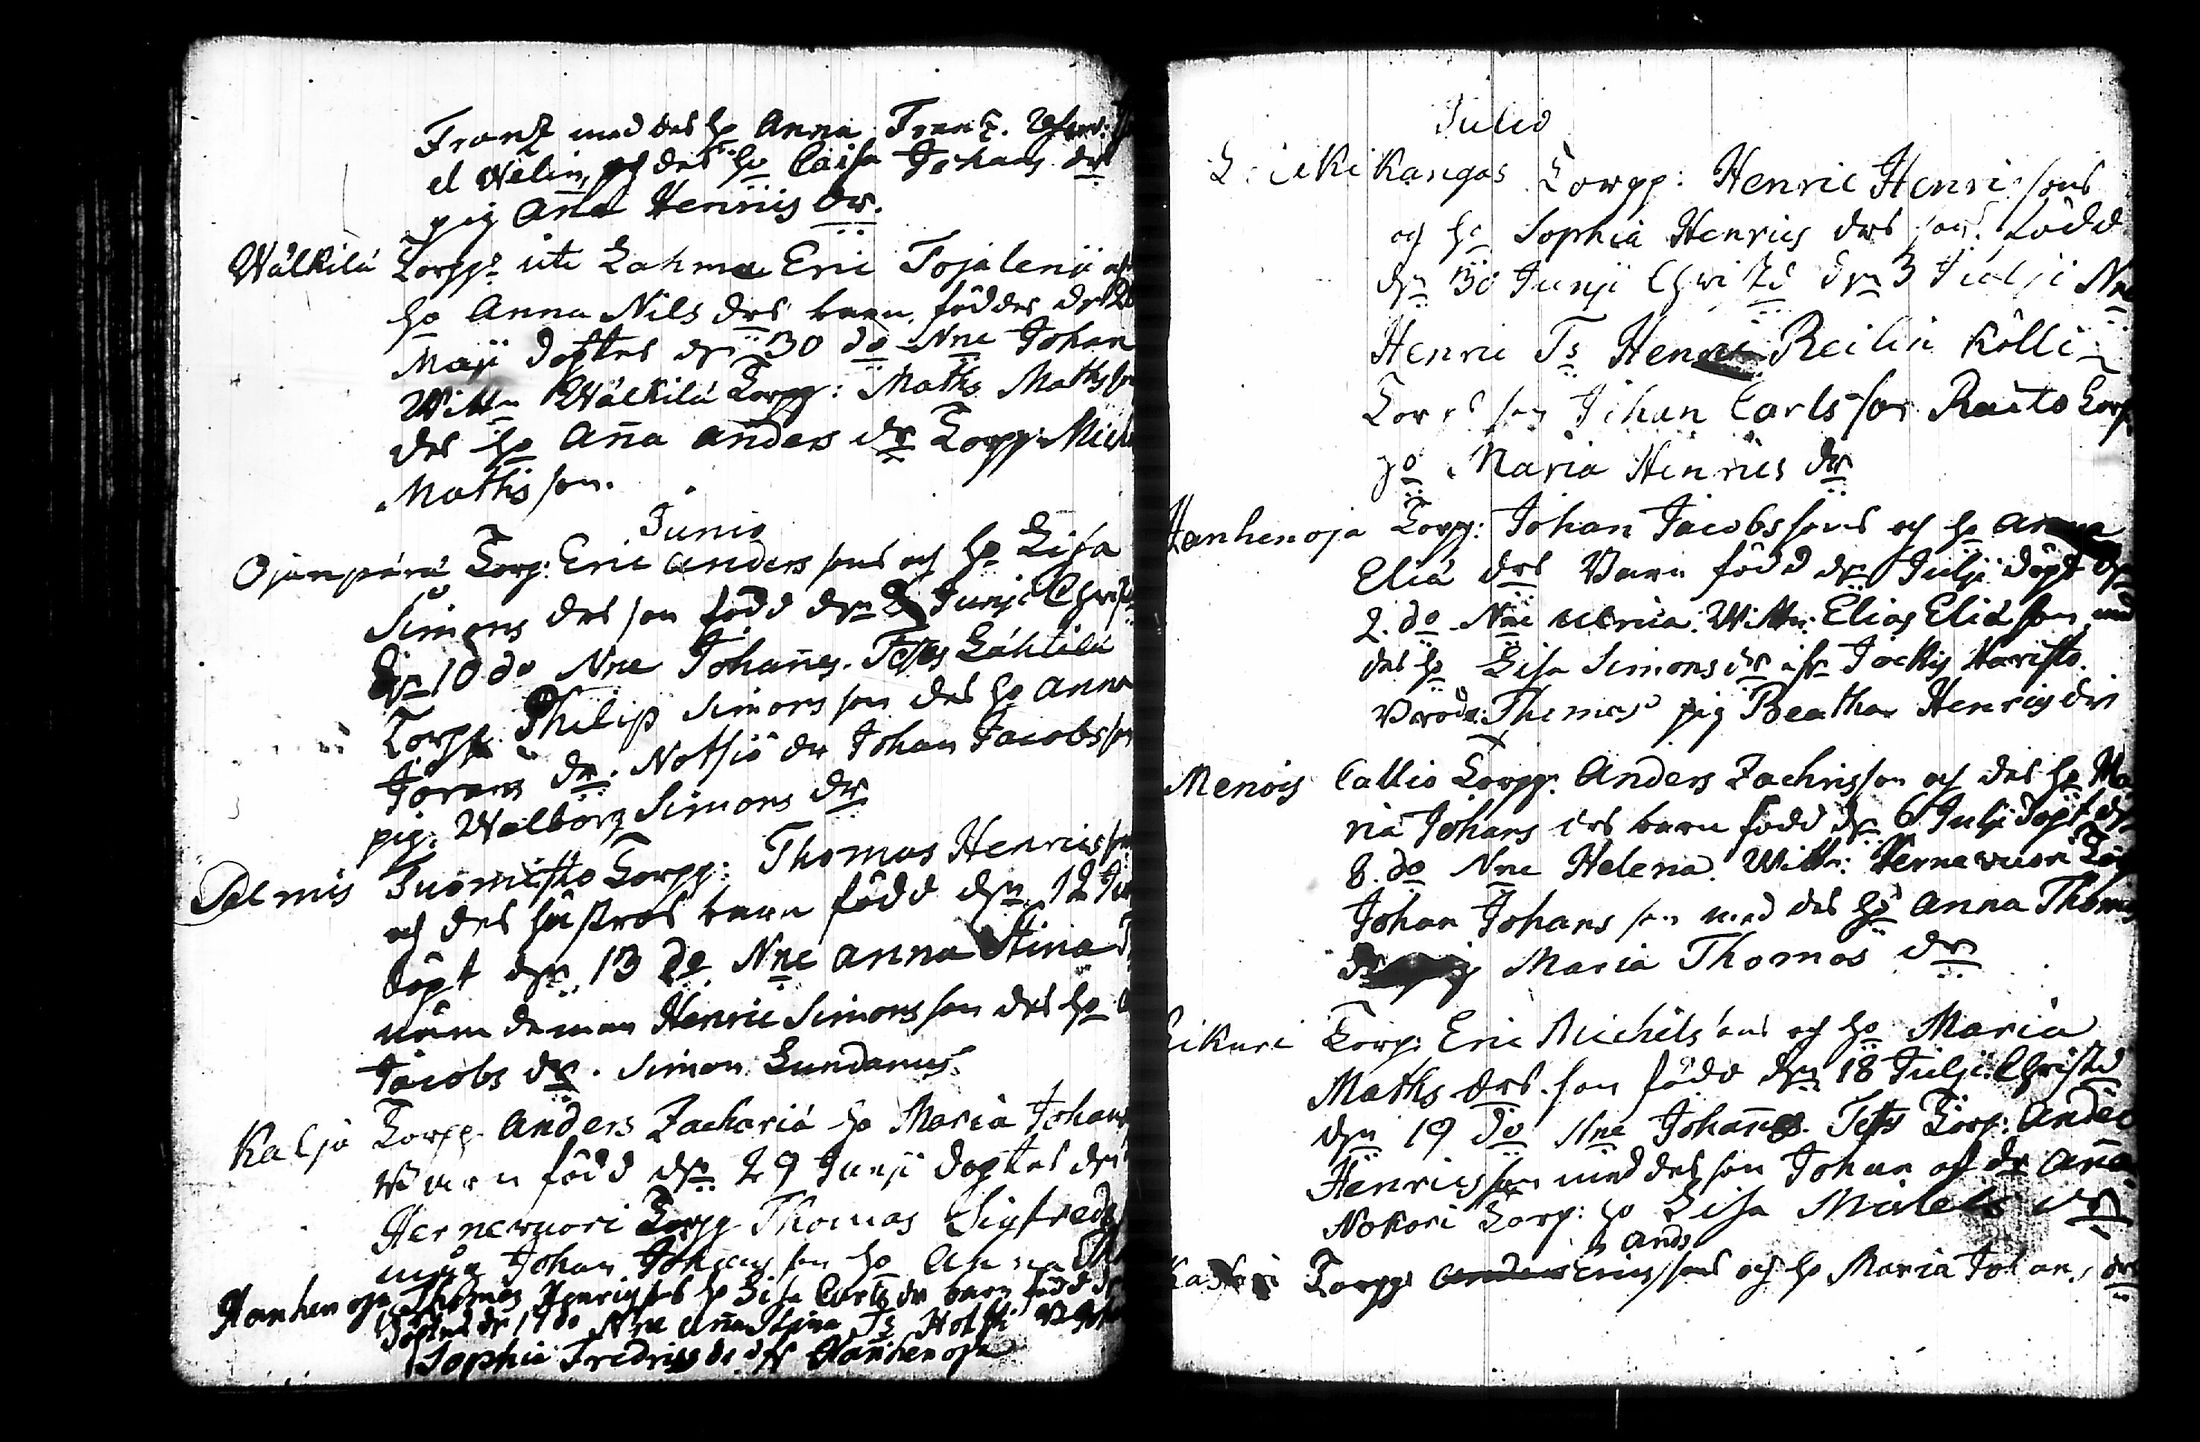 Frantz med des ho Anna Frantz.
el Welin, och des ho Caisa Johans dr
pig Aña Henrics dr.
Wälkilä Torpp: ute Lahma Eric Tojaleni och
ho Anna Nils drs barn, föddes dn
Maji döptes dn 30 do Nne Johan
Wittn Wälkilä Torpp: Maths Mathsson
des ho Aña Anders dr Torpp: Mich
Mathsson.
Junio
Ojanperä Torp: Eric Anderssons och ho Lisa
Simons drs son född dn 2 Junji Christ
dn 10 do Nne Johañes. Tstes Lähtilä
Torpp Philip Simonsson des ho Anna
Jörans dr. Notsiö dr Johan Jacobsson
pig: Walborg Simons dr
Palmis Tuomisto Torpp: Thomas Henricsson
och des hustros barn född dn 12 Jun
döpt dn 13 do Nne Anna Stina
näm deman Henric Simonsson des ho
Jacobs dr. Simon Sundanus
Kalja Torpp Anders Zachariä ho Maria Johans
Barn född dn 29 Junji döptes dn
Hernewuori Torpp Thomas Sigfreds
måg Johan Johansson ho Anna
Hanhenoja Thomas Henricssons ho Lisa Carls dr barn född dn
döptes dn 17 do Nne Aña Stina Ts
Sophia Fredrics dr ifr Hanhenoja
Julio
Kangas Torpp: Henric Henricsons
och ho Sophia Henrics drs son. Född
dn 30 Junji Christd dn 3 Julji Nne
Henric Ts Henric Reilin Kölli
Torps son Johan Carlsson Rauto Torp
ho Maria Henrics dr
Hanhenoja Torpp: Johan Jacobssons och ho Anna
Eliä drs Barn född dn Julji döpt dn
2. do Nne Ulrica. Wittn: Elias Eliäson med
des ho Lisa Simons dr ifr Jockis Haristo.
Thomas pig Beatha Henrics dr
Menois Callio Torpp: Anders Zachrisson och des ho Ma
ria Johans drs barn född dn 6 Julji döpt dn
8. do Nne Helena. Wittn: Hernewuori Torp
Johan Johansson med des ho Anna Thomas
dr pig Maria Thomas dr
Torp: Eric Michelsons och ho Maria
Maths drs son född dn 18 Julji Christd
dn 19 do Nne Johañes. Tsts Torp: Anders
Henricsson med des son Johan och dr Aña
Nokari Torp: ho Lisa Michels dr
Ands
Torpp: Ericssons och ho Maria Johans drs